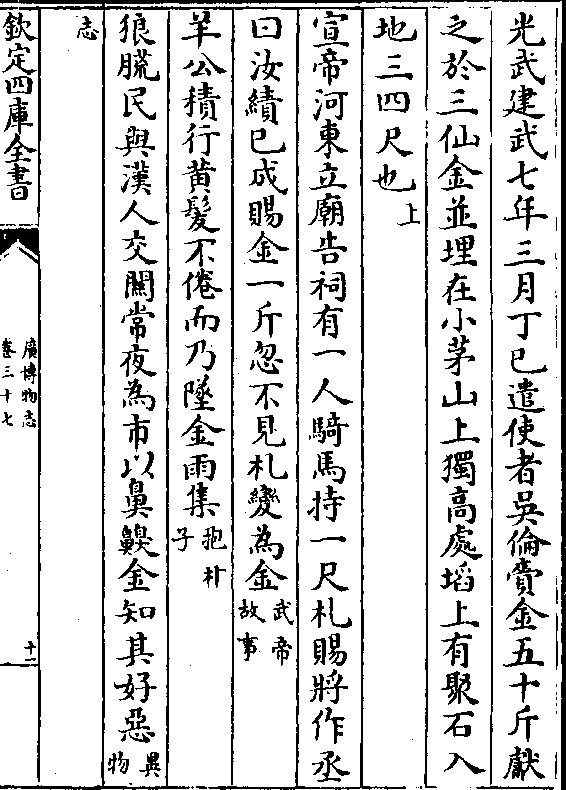 光武建武七年三月丁巳遣使者吳倫賫金五十斤獻
之於三仙金並埋在小茅山上獨高處埳上有聚石入
地三四尺也上
宣帝河東立廟告祠有一人騎馬持一尺札賜將作丞
曰汝績已成賜金一斤忽不見札變為金武帝故事
羊公積行黄髮不倦而乃墜金雨集抱朴子
狼䏧民與漢人交關常夜為市以鼻齅金知其好惡異物
志
欽定四庫全書
廣博物志
卷三十七
十二